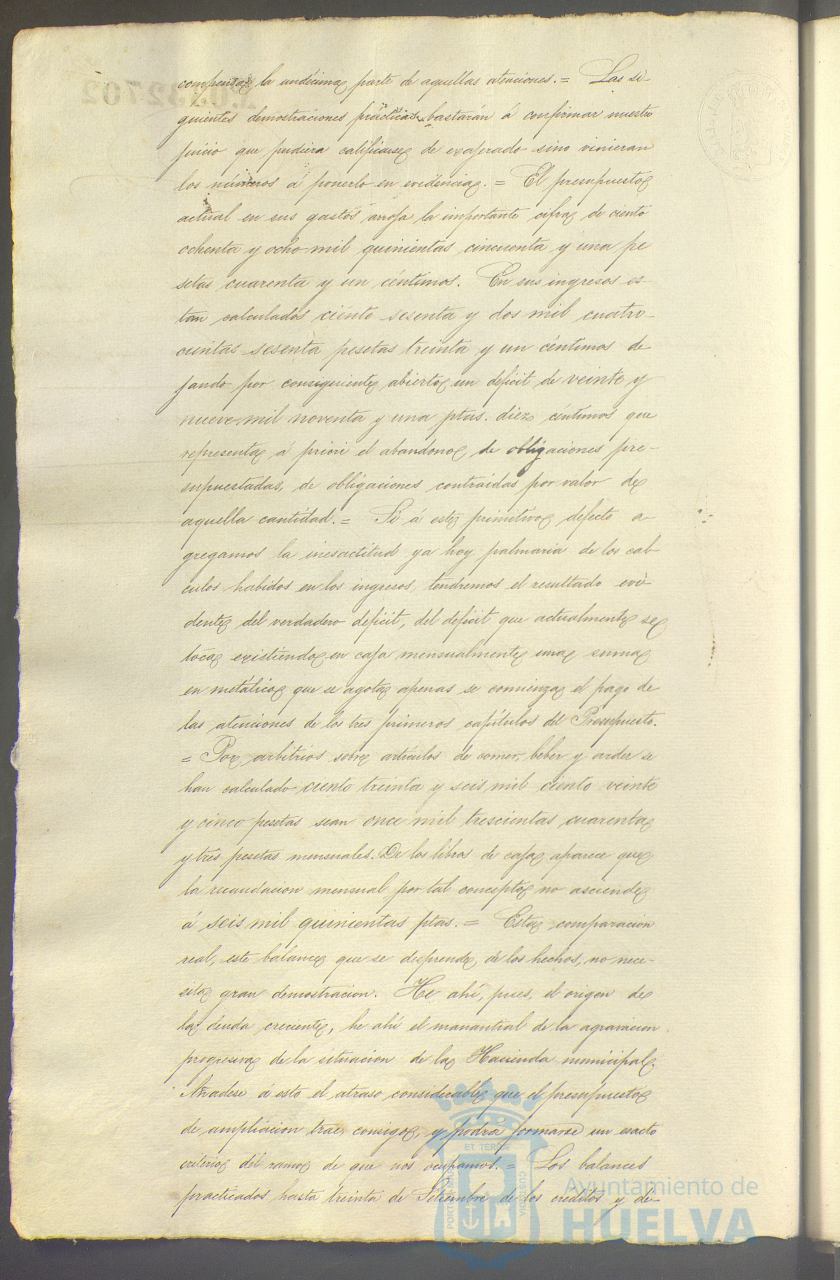 compensa la undécima parte de aquellas atenciones. = Las si-
guientes demostraciones prácticas bastarán á confirmar nuestro
juicio que pudiera calificarse de exajerado sino vinieran
los números á ponerlo en evidencia. = El presupuesto
actual en sus gastos arroja la importante cifra de ciento
ochenta y ocho mil quinientas cincuenta y una pe
setas cuarenta y un céntimos. En sus ingresos es-
tan calculados ciento sesenta y dos mil cuatro-
cientas sesenta pesetas treinta y un céntimos de
jando por consiguiente abierto un deficit de veinte y
nueve mil noventa y una ptas. diez céntimos que
representa á priori el abandono de obligaciones pre-
supuestadas, de obligaciones contraidas por valor de
aquella cantidad. = Si á este primitivo defecto a-
gregamos la inesactitud ya hoy palmaria de los cál-
culos habidos en los ingresos, tendremos el resultado evi-
dente del verdadero deficit, del deficit que actualmente se
toca existiendo en caja mensualmente una suma
en metálico que se agota apenas se comienza el pago de
las atenciones de los tres primeros capítulos del Presupuesto.
= Por arbitrios sobre artículos de comer, beber y arder se
han calculado ciento treinta y seis mil ciento veinte
y cinco pesetas sean once mil trescientas cuarenta
y tres pesetas mensuales. De los libros de caja aparece que
la recaudacion mensual por tal concepto no asciende
á seis mil quinientas ptas. = Esta comparacion
real, este balance que se desprende de los hechos, no nece-
sita gran demostracion. He ahí, pues, el origen de
la deuda creciente, he ahí el manantial de la agravacion
progresiva de la situacion de la Hacienda municipal.
Añadese á esto el atraso considerable que el presupuesto
de ampliacion trae consigo, y podrá formarse un exacto
criterio del ramo de que nos ocupamos. = Los balances
practicados hasta treinta de Setiembre de los creditos y de-
Ayuntamiento de
HUELVA